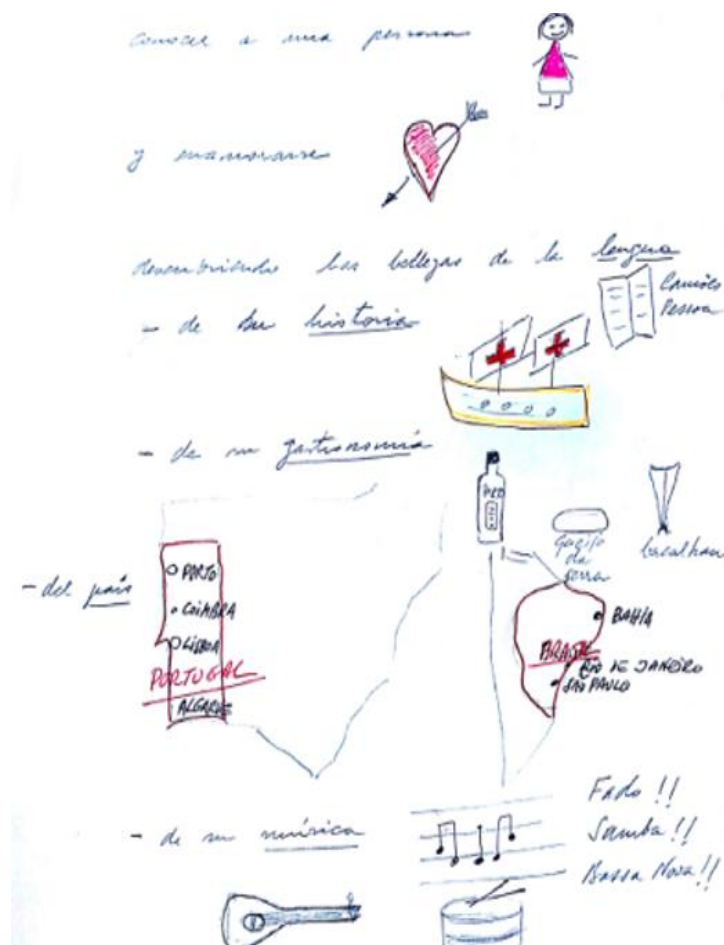 conocer a una persona
y enamorarse
descubriendo las bellezas de la lengua
Camões
Pessoa
- de su historia
- de su gastronomía
Queijo
da
serra
bacalhau
- del país
PORTO
COIMBRA
LISBOA
PORTUGAL
ALGARVE
BAHIA
BRASIL
RIO DE JANEIRO
SAO PAULO
- de su música
Fado!!
Samba!!
Bossa Nova!!